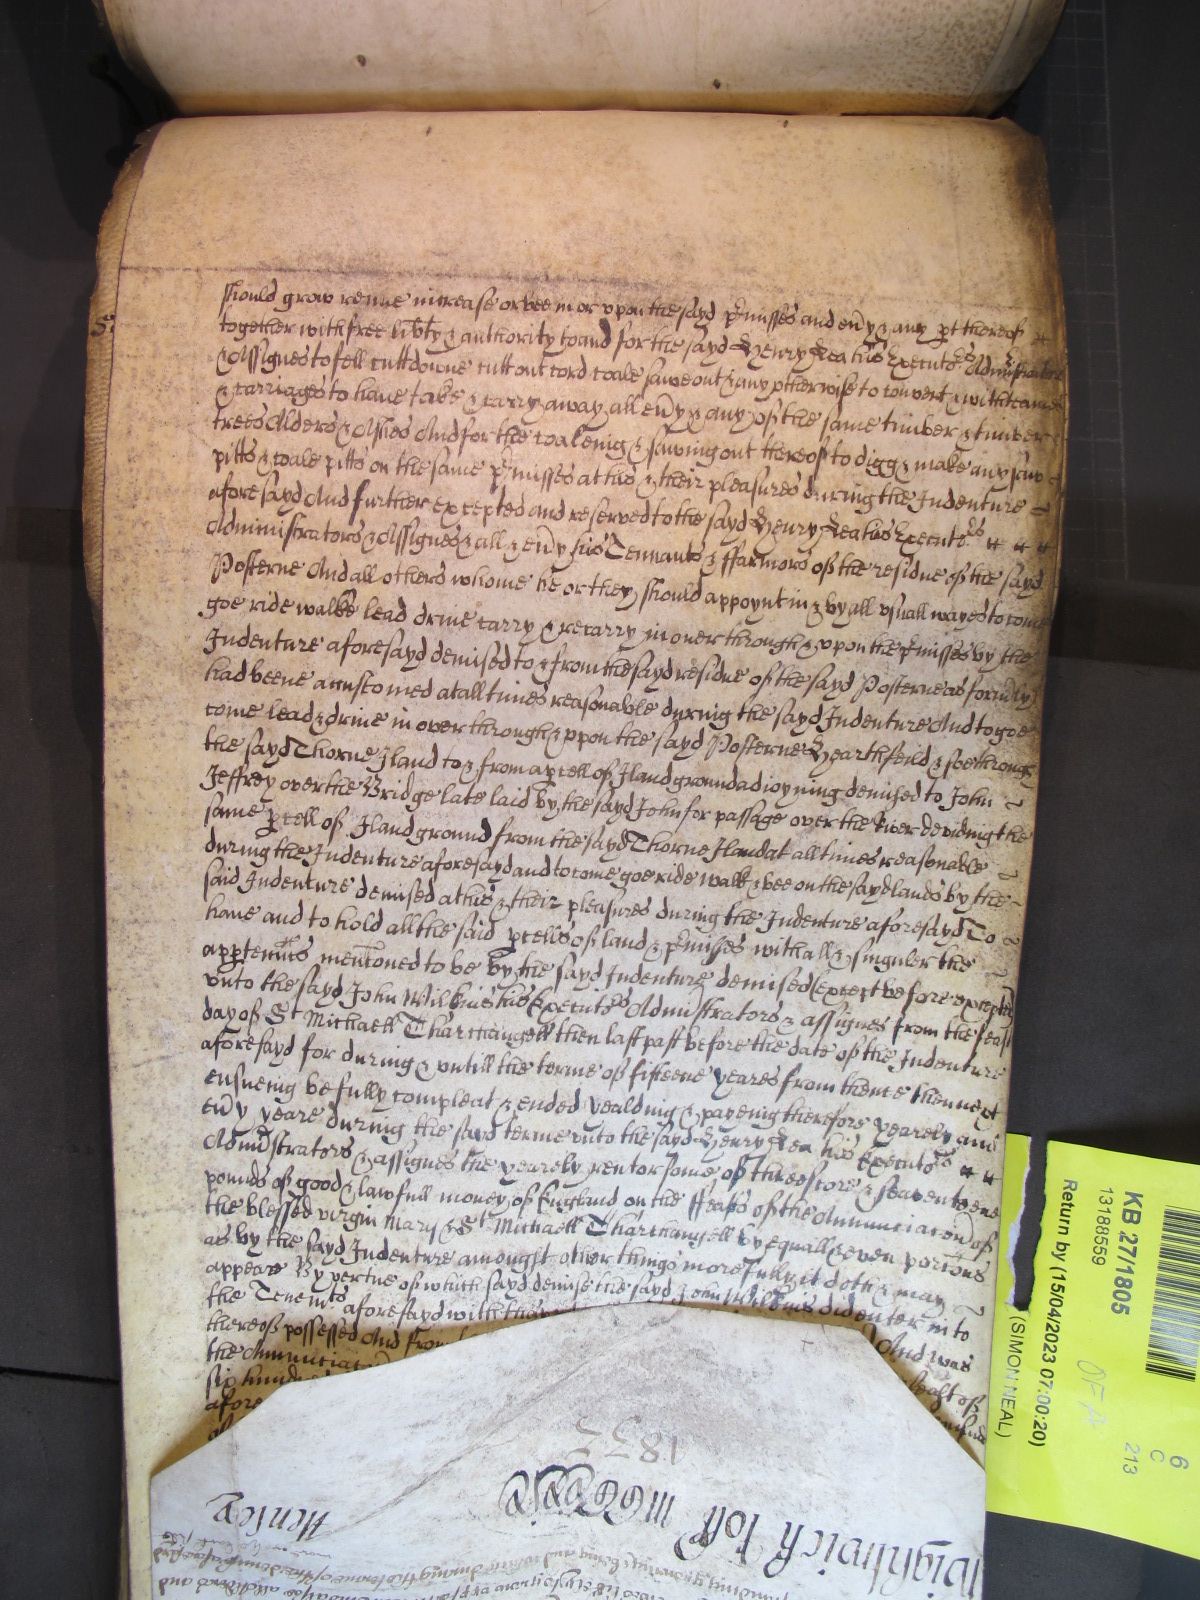 should grow renue increase or bee in or upon the sayd p̄misses and eũy & any pt thereof
together with free lib̃ty & authority to and for the sayd Henry Rea his Executrs Administrators
& Assignes to fell cutt downe cutt out cord coale sawe out & any otherwise to convert & with teames
& carriages to have take & carry away all eũy & any of the same timber & timber
trees Alders & Ashes And for the coaleing & sawing out thereof to digg & make any saw
pitts & coale pitts on the same p̄misses at his & their pleasures during the Indenture
aforesayd And further excepted and reserved to the sayd Henry Rea his Executrs
Administrators & Assignes & all & eũy his Tennants & ffarmors of the residue of the sayd
Posterne And all others whome he or they should appoynt in & by all usuall wayes to come
goe ride walke lead drive carry & recarry in over through & upon the p̄misses by the
Indenture aforesayd demised to & from the sayd residue of the sayd Posterne as form̃ly
had beene accustomed at all times reasonable during the sayd Indenture And to goe
come lead & drive in over through & uppon the sayd Posterne Hearthfeild & soe through
the sayd Thorne Iland to & from a pcell of Iland ground adioyning demised to John
Jeffrey over the Bridge late laid by the sayd John for passage over the River devidinge the
same pcell of Iland ground from the sayd Thorne Iland at all times reasonable
during the Indenture aforesayd and to come goe ride walk & bee on the sayd lands by the
said Indenture demised at his & their pleasures during the Indenture aforesayd To
have and to hold all the said pcells of land & p̄misses with all & singuler the
apptenncs menc̃oned to be by the sayd Indenture demised (except before excepted)
unto the sayd John Wilkins his Executrs Administrators & assignes from the feast
day of St Michaell Tharchangell then last past before the date of the Indenture
aforesayd for during & untill the terme of fifteene yeares from thence then next
ensueing be fully compleat & ended yealding & payeing therefore yearely and
eũy yeare during the sayd terme unto the sayd Henry Rea his Executrs
Adm̃istrators & assignes the yearely rent or some of threescore & seaventeene
pounds of good & lawfull money of England on the ffeasts of the Annunciac̃on of
the blessed virgin Mary & St Michaell Tharchangell by equall & even porc̃ons
as by the sayd Indenture amongst other things more fully it doth & may
appeare By vertue of which sayd demise the sayd John Wilkins did enter into
the Tenemts aforesayd with the And was
thereof possessed And from
the Annunciac̃ feast of
six hundred
afore
KB 27/1805
13188559
Return by (15/04/2023 07:00:20)
(SIMON NEAL)
6
C
213
1835
Wightwich toft
Henley